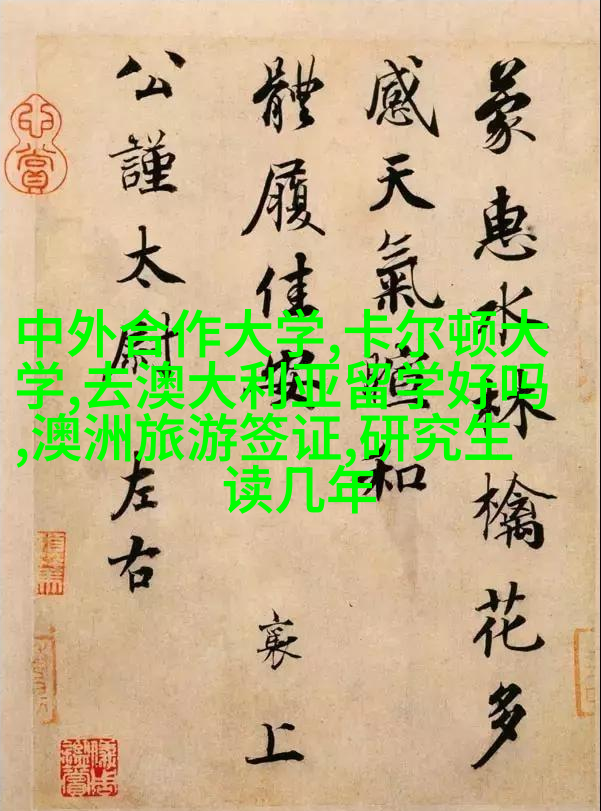 中外合作大学,卡尔顿大
学,去澳大利亚留学好吗
,澳洲旅游签证,研究生
读几年
蒙惠水林檎花多
感天氣暄和
體履佳
襄上
公謹太尉左右